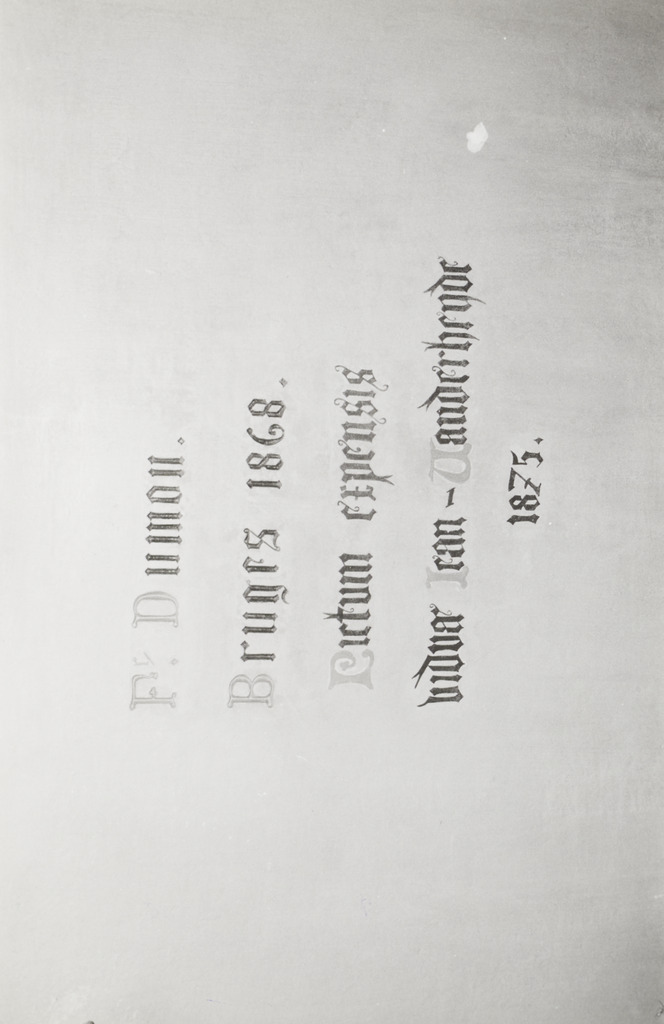 Fr. Dumon.
Bruges 1868.
Pictum expensis
vidvae Ican - Vanderheyde
1875.